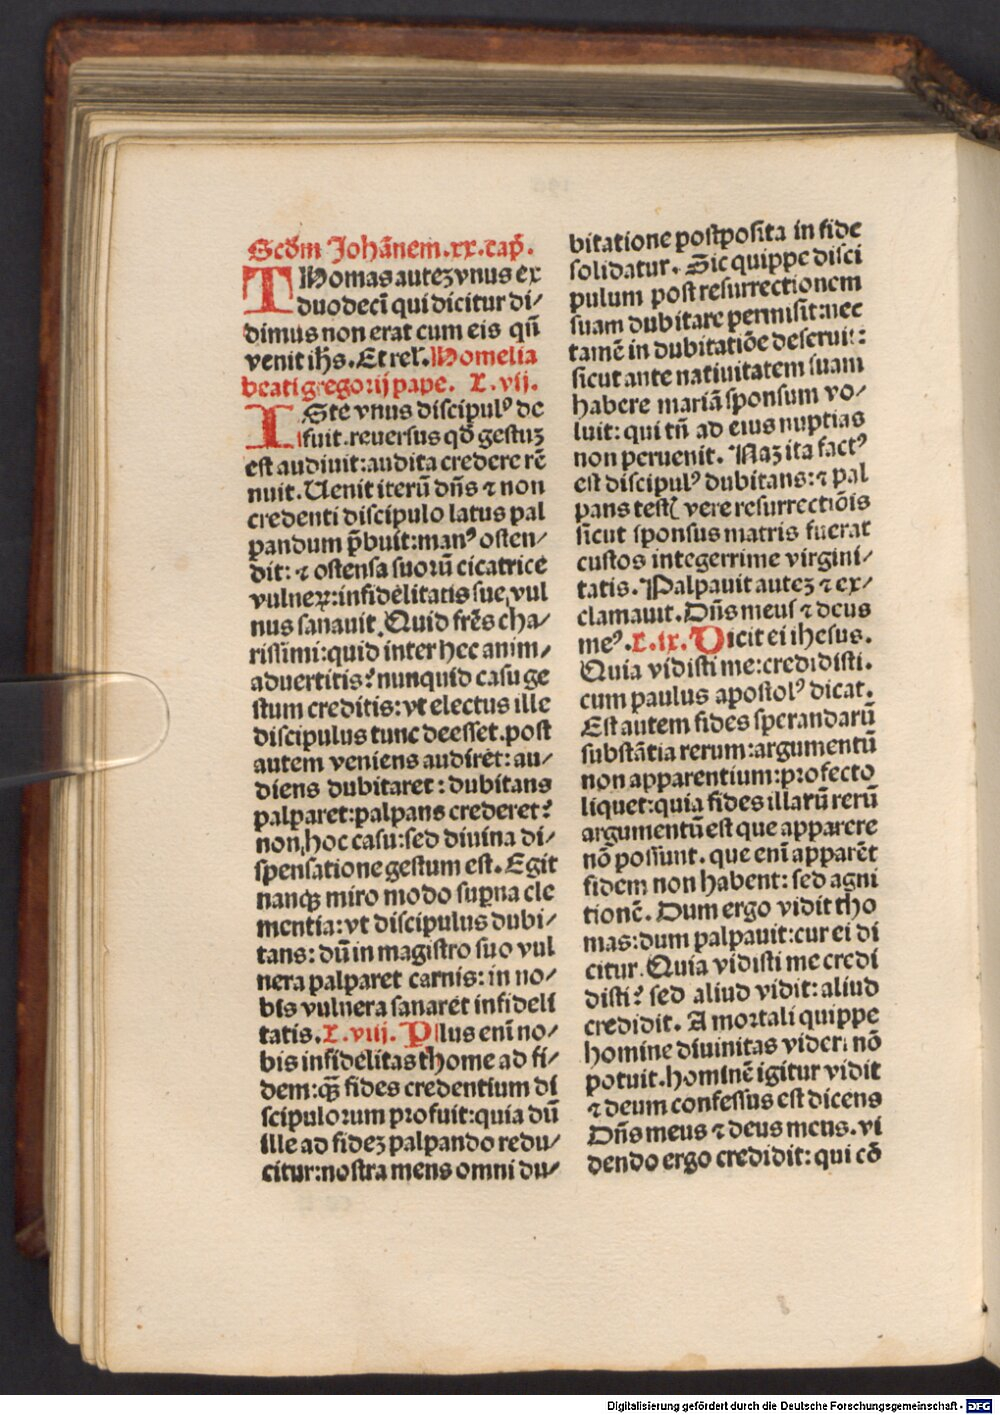 Scd̃m Johãnem.xx.cap̃.
THomas auteꝫ vnus ex
duodeci̅ qui dicitur di/
dimus non erat cum eis qn̄
venit ih̄s. Et rel'. Homelia
beati gregorij pape. L.vij.
ISte vnus discipulꝰ de
fuit.reuersus qd̃ gestuꝫ
est audiuit:audita credere rē
nuit. Uenit iterū dn̄s ⁊ non
credenti discipulo latus pal
pandum p̄buit:manꝰ osten/
dit: ⁊ ostensa suorū cicatrice
vulneꝝ:infidelitatis sue vul
nus sanauit. Quid fr̄es cha/
rissimi:quid inter hec anim/
aduertitis? nunquid casu ge
stum creditis:vt electus ille
discipulus tunc deesset.post
autem veniens audiret: au/
diens dubitaret: dubitans
palparet:palpans crederet?
non hoc casu:sed diuina di/
spensatione gestum est. Egit
nanqꝫ miro modo sup̱na cle
mentia:vt discipulus dubi/
tans: dū in magistro suo vul
nera palparet carnis: in no/
bis vulnera sanaret infideli
tatis. L.viij. Plus enī no/
bis infidelitas thome ad fi/
dem:q̄ꝫ fides credentium di
scipulorum profuit:quia dū
ille ad fideꝫ palpando redu/
citur:nostra mens omni du/
bitatione postposita in fide
solidatur. Sic quippe disci
pulum post resurrectionem
suam dubitare permisit:nec
tamē in dubitatiōe deseruit:
sicut ante natiuitatem suam
habere mariā sponsum vo/
luit: qui tn̄ ad eius nuptias
non peruenit. Naꝫ ita factꝰ
est discipulꝰ dubitans: ⁊ pal
pans testꝭ vere resurrectiōis
sicut sponsus matris fuerat
custos integerrime virgini/
tatis. Palpauit auteꝫ ⁊ ex/
clamauit. Dn̄s meus ⁊ deus
meꝰ. L.ix. Dicit ei ihesus.
Quia vidisti me:credidisti.
cum paulus apostolꝰ dicat.
Est autem fides sperandarū
substātia rerum:argumentū
non apparentium:profecto
liquet:quia fides illarū rerū
argumentū est que apparere
nō possunt. que enī apparēt
fidem non habent: sed agni
tionē. Dum ergo vidit tho
mas:dum palpauit:cur ei di
citur. Quia vidisti me credi
disti? sed aliud vidit: aliud
credidit. A mortali quippe
homine diuinitas videri nō
potuit.hominē igitur vidit
⁊ deum confessus est dicens
Dn̄s meus ⁊ deus meus. vi
dendo ergo credidit: qui cō
Digitalisierung gefördert durch die Deutsche Forschungsgemeinschaft - DFG